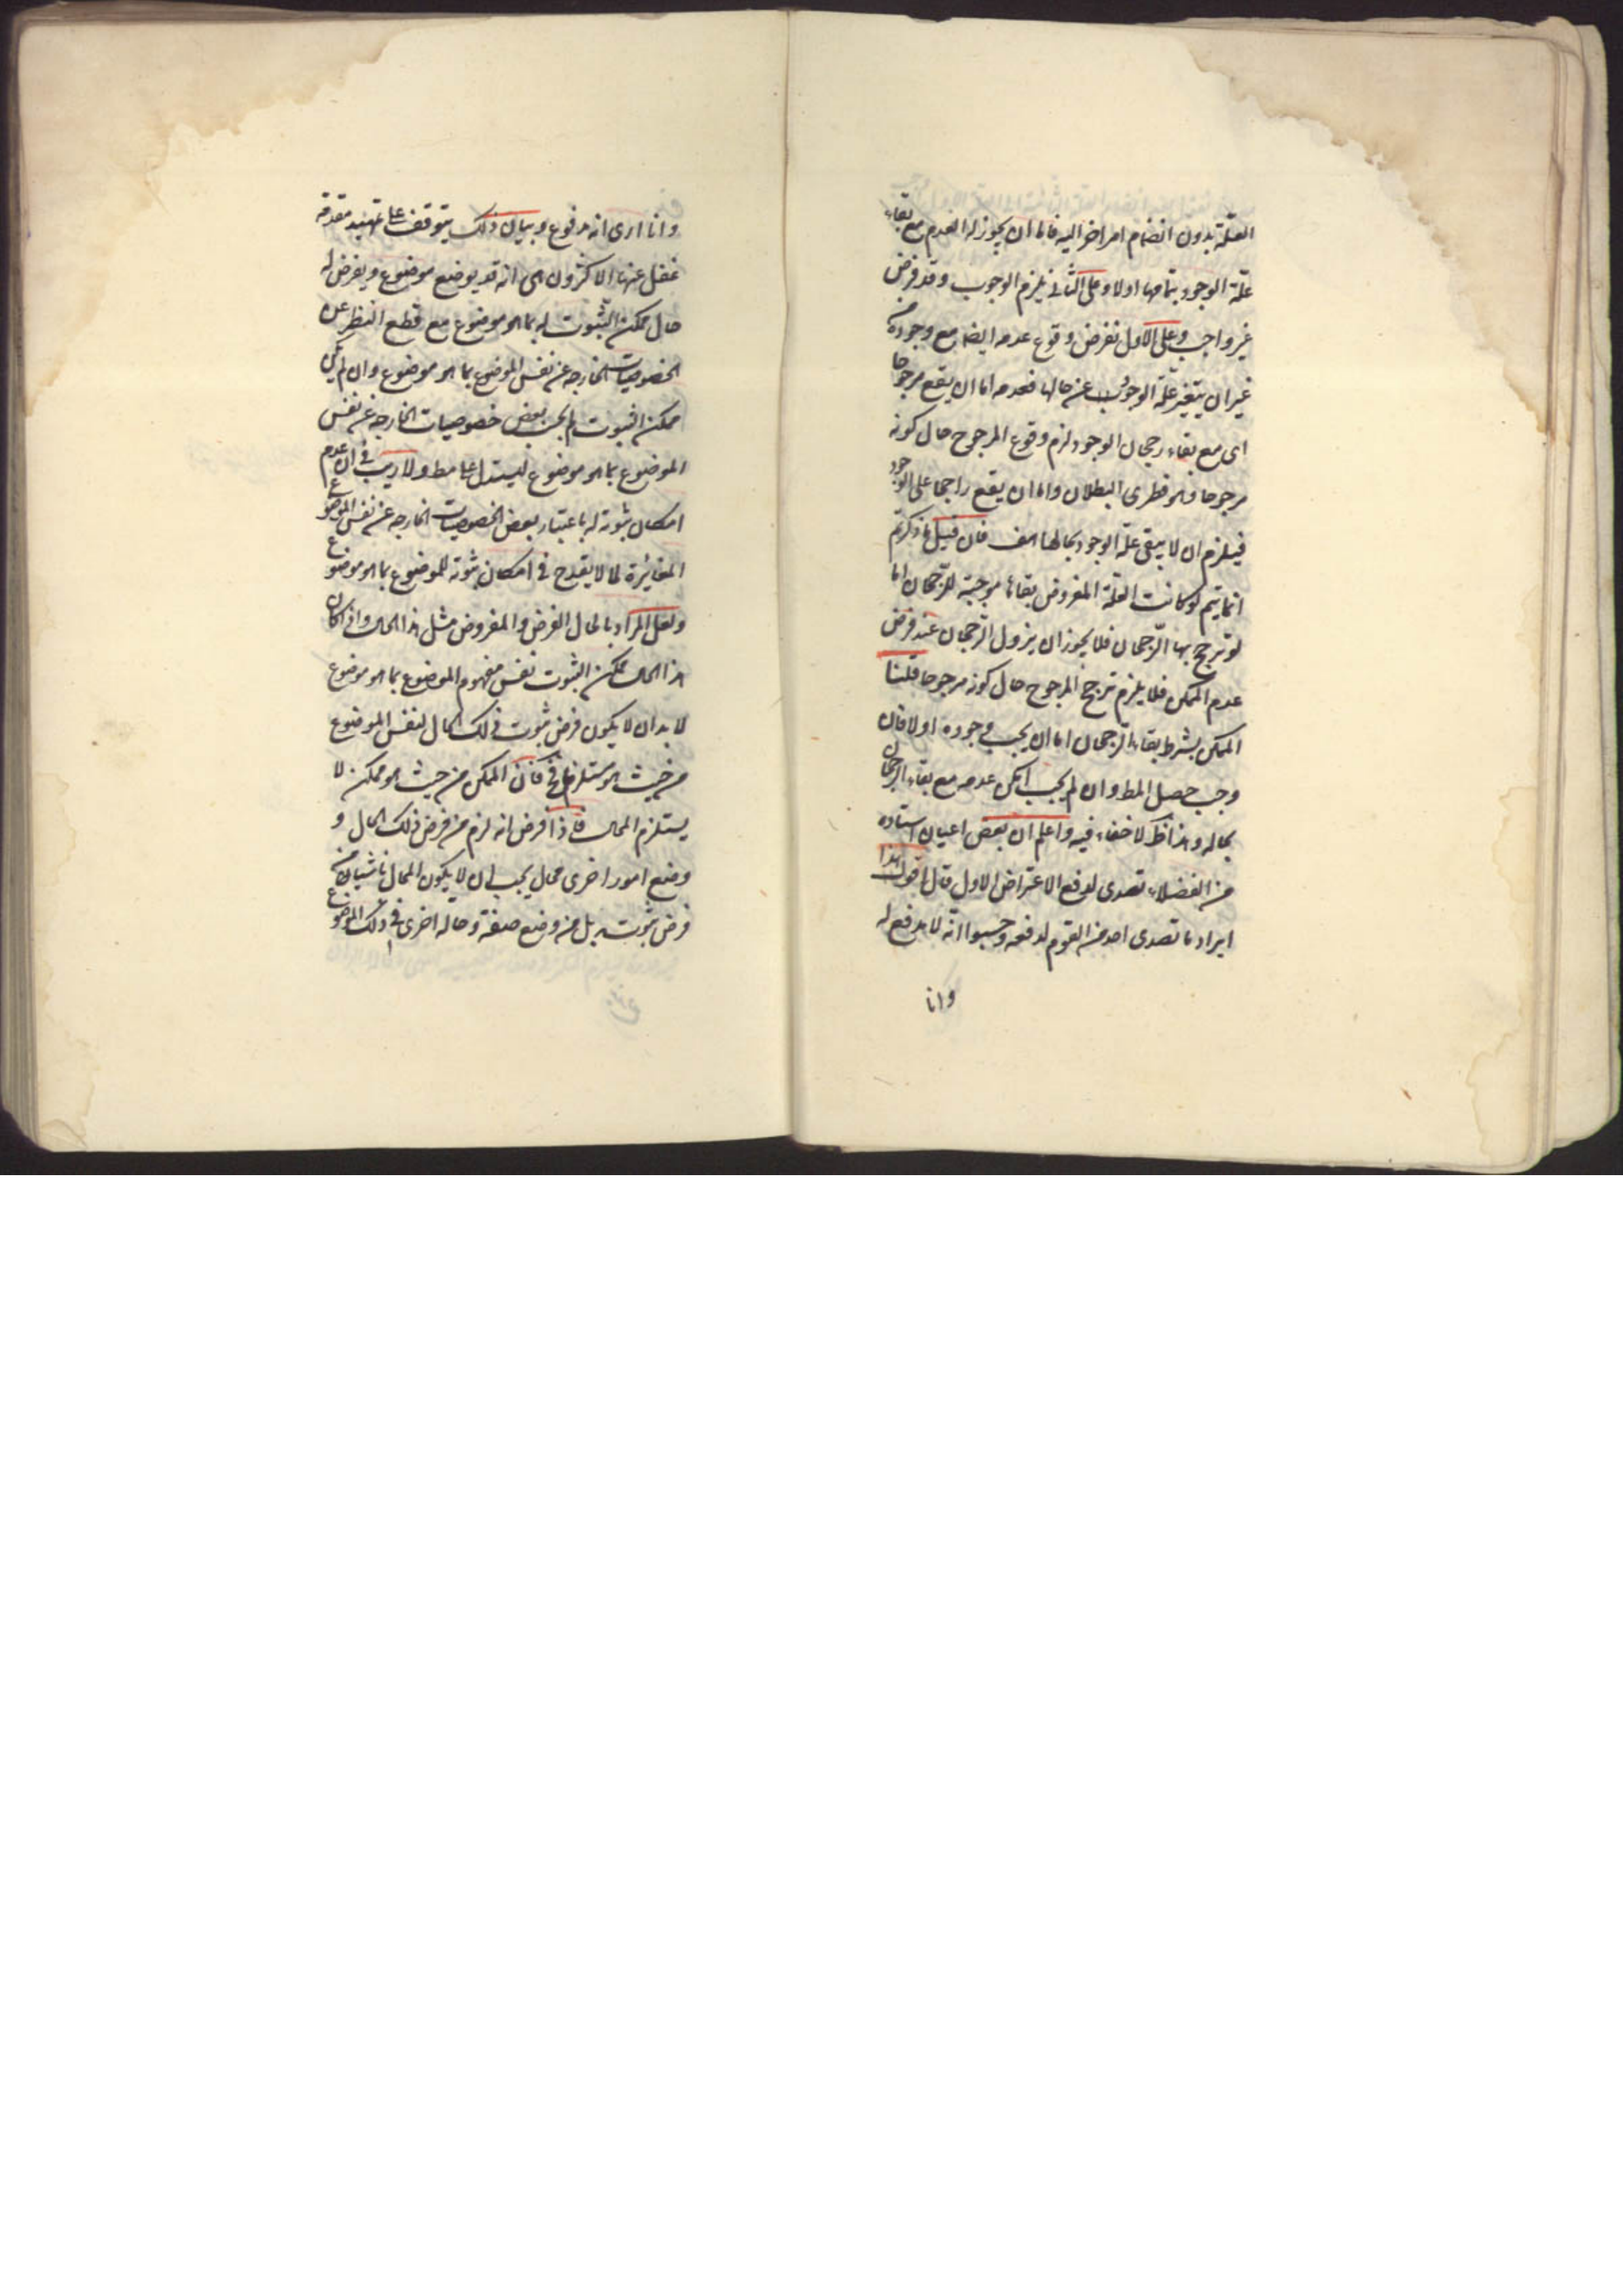 العلّة بدون انضمام امر اخر اليه فاما ان يجوز له العدم مع بقاء
علّة الوجود بتمامها اولا وعلى الثانى يلزم الوجوب وقد فرض
غير واجب وعلى الاول نفرض وقوع عدمه ايضا مع وجوده من
غير ان يتغير علّة الوجود عن حالها فعدمه اما ان يقع مرجوحا
اى مع بقاء رجحان الوجود لزم وقوع المرجوح حال كونه
مرجوحا وهو فطرى البطلان واما ان يقع راجحا على الوجود
فيلزم ان لا يبقى علّة الوجود بحالها هف فان قيل ما ذكرتم
انما يتم لو كانت العلّة المفروض بقاءها موجبة للرّجحان اما
لو ترجح بها الرّجحان فلا يجوز ان يزول الرّجحان عند فرض
عدم الممكن فلا يلزم ترجح المرجوح حال كونه مرجوحا قلنا
الممكن بشرط بقاء الرّجحان اما ان يجب وجوده اولا فان
وجب حصل المط وان لم يجب امكن عدمه مع بقاء الرجحان
بحاله وهذا كلا خفاء فيه واعلم ان بعض اعيان استاده
من الفضلاء تصدى لدفع الاعتراض الاول قال اقول هذا
ايراد ما تصدى احد من القوم لدفعه وحسبوا انّه لا مدفع له
وانا
وانا ارى انه مدفوع وبيان ذلك يتوقف على تمهيد مقدمة
غفل عنها الاكثرون هى انه قد يوضع موضوع ويفرض له
حال ممكن الثبوت له بما هو موضوع مع قطع النظر عن
الخصوصيات الخارجه عن نفس الموضوع بما هو موضوع وان لم يكن
ممكن الثبوت له بعض خصوصيات الخارجه عن نفس
الموضوع بما هو موضوع ليستدل على مط ولا ريب فى ان عدم
امكان ثبوته له باعتبار بعض الخصوصيات الخارجه عن نفس الموضوع
المغايرة لما لا يقدح فى امكان ثبوته للموضوع بما هو موضوع
ولعل المراد بالحال الفرض والمفروض مثل هذا الحال واذا كان
هذا الحال ممكن الثبوت نفس مفهوم الموضوع بما هو موضوع
لا بد ان لا يكون فرض ثبوت ذلك الحال لنفس الموضوع
من حيث هو مستلزما لمح فان الممكن من حيث هو ممكن لا
يستلزم المحال فاذا فرض انه لزم من فرض ذلك الحال و
وضع امور اخرى محال يجب ان لا يكون المحال ناشيا من
فرض ثبوته بل من وضع صفة وحاله اخرى فى ذلك الموضوع